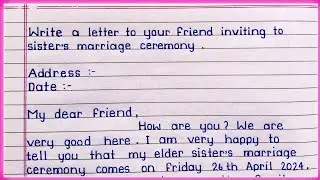 Write a letter to your friend inviting to
sister's marriage ceremony .
Address :-
Date :-
My dear friend,
How are you? We are
very good here. I am very happy to
tell you that my elder sister's marriage
ceremony comes on Friday 26th April 2024.